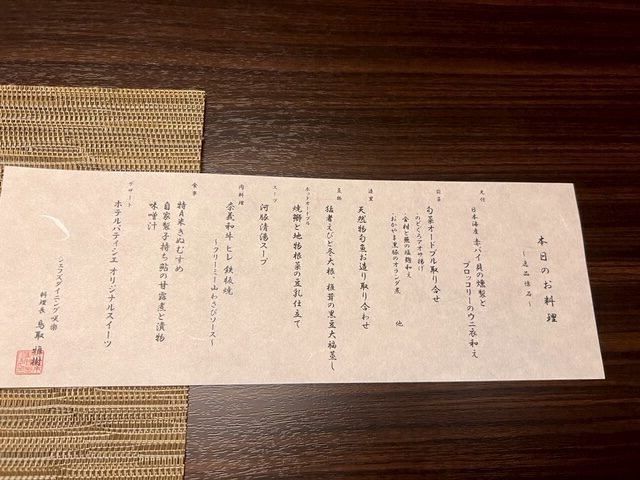 本日のお料理
先付
日本海産 赤バイ貝の燻製と
ブロッコリーのウニ衣和え
前菜
旬菜オードブル取り合せ
・のどくろアオサ揚げ
・おかやま黒豚のオランダ煮
他
造里
天然物旬魚お造り取り合わせ
蒸物
猛者えびと冬大根、椎茸の黒豆大福蒸し
ホットオードブル
焼鰤と地物根菜の豆乳仕立て
スープ
河豚清湯スープ
肉料理
奈義和牛 ヒレ 鉄板焼
～クリーミー山わさびソース～
食事
特A米きぬむすめ
自家製子持ち鮎の甘露煮と漬物
味噌汁
デザート
ホテルパティシエ オリジナルスイーツ
シェフズダイニング 咲楽
料理長 鳥取 雅樹